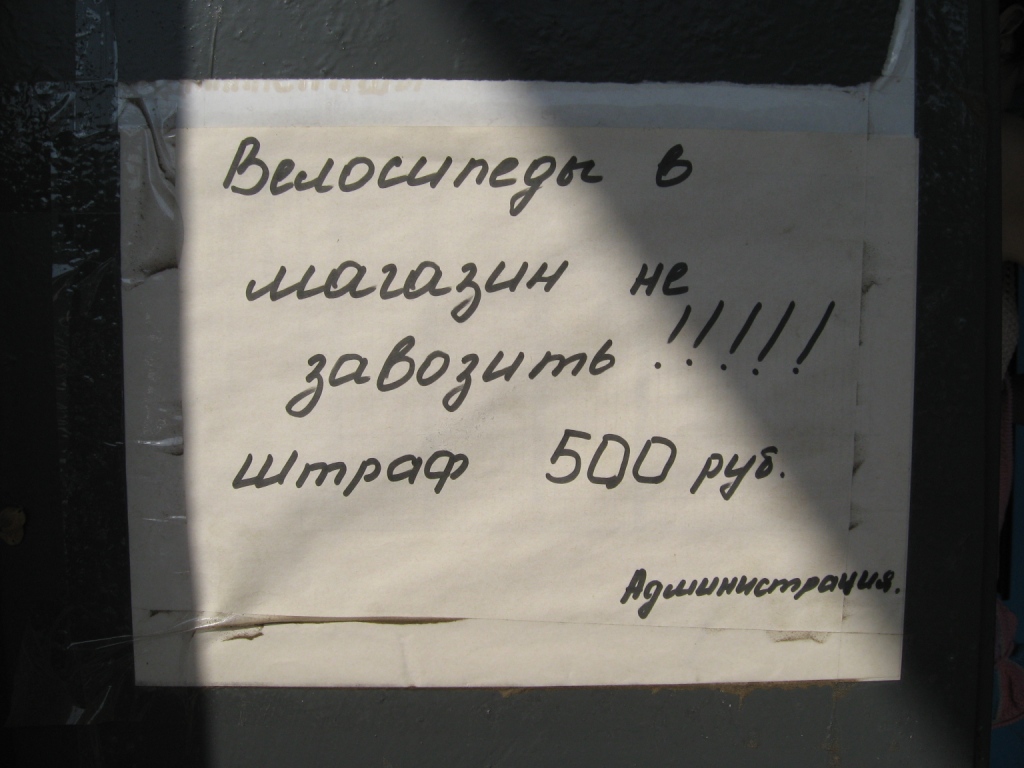 Велосипеды в
магазин не
завозить !!!!!
штраф 500 руб.
Администрация.